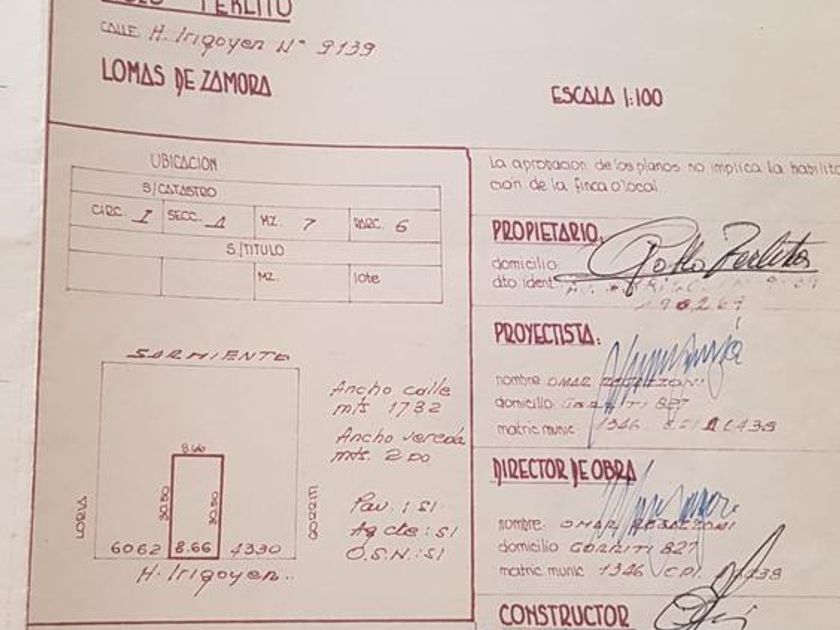 PERLITO
CALLE H. Irigoyen Nº 9139
LOMAS DE ZAMORA
ESCALA 1:100
UBICACION
S/CATASTRO
CIRC. I SECC. A MZ. 7 PARC. 6
S./TITULO
MZ. lote
SARMIENTO
8.66
LORIA
30.50
30.50
GORRITI
6062 8.66 4330
H. Irigoyen.
Ancho calle
mts 1732
Ancho vereda
mts. 2 00
Pav. : SI
Ag cte : SI
O.S.N. : SI
La aprobacion de los planos no implica la habilita
cion de la finca o local
PROPIETARIO.
domicilio
dto ident.
PROYECTISTA:
nombre OMAR
domicilio GORRITI 827
matric munic 1346
DIRECTOR DE OBRA
nombre OMAR
domicilio GORRITI 827
matric munic 1346 C.P.I.
CONSTRUCTOR